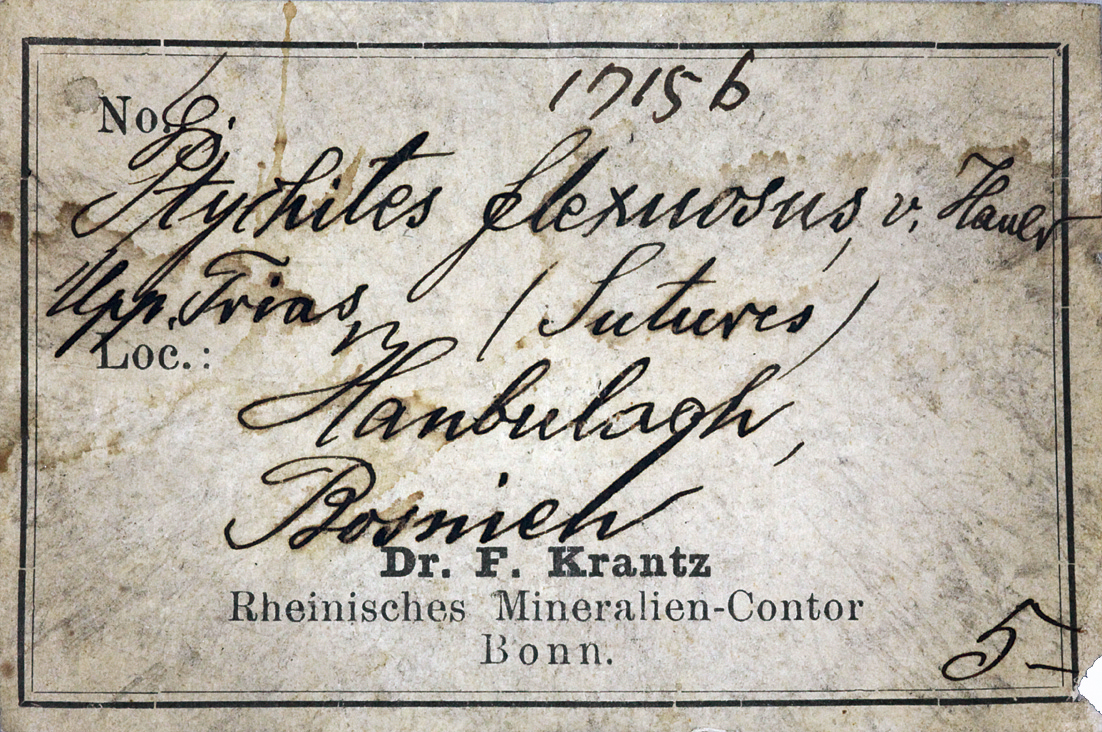 1715 b
No.
Ptychites flexuosus, v. Hauer
Upp. Trias (Sutures)
Loc.:
Hanbulogh,
Bosnien
Dr. F. Krantz
Rheinisches Mineralien-Contor
Bonn.
5-